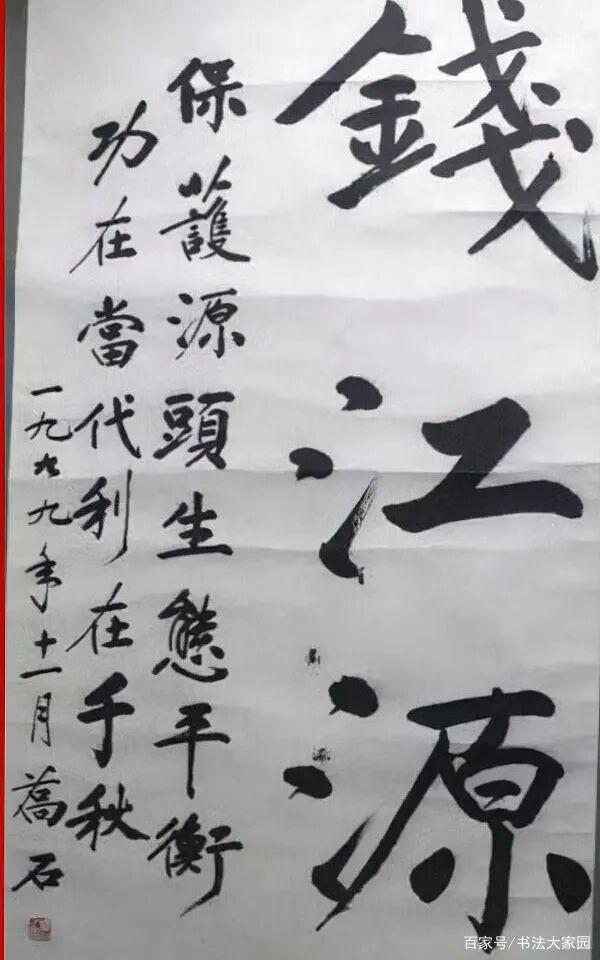 錢江源
保護源頭生態平衡
功在當代利在千秋
一九九九年十一月喬石
百家号/书法大家园